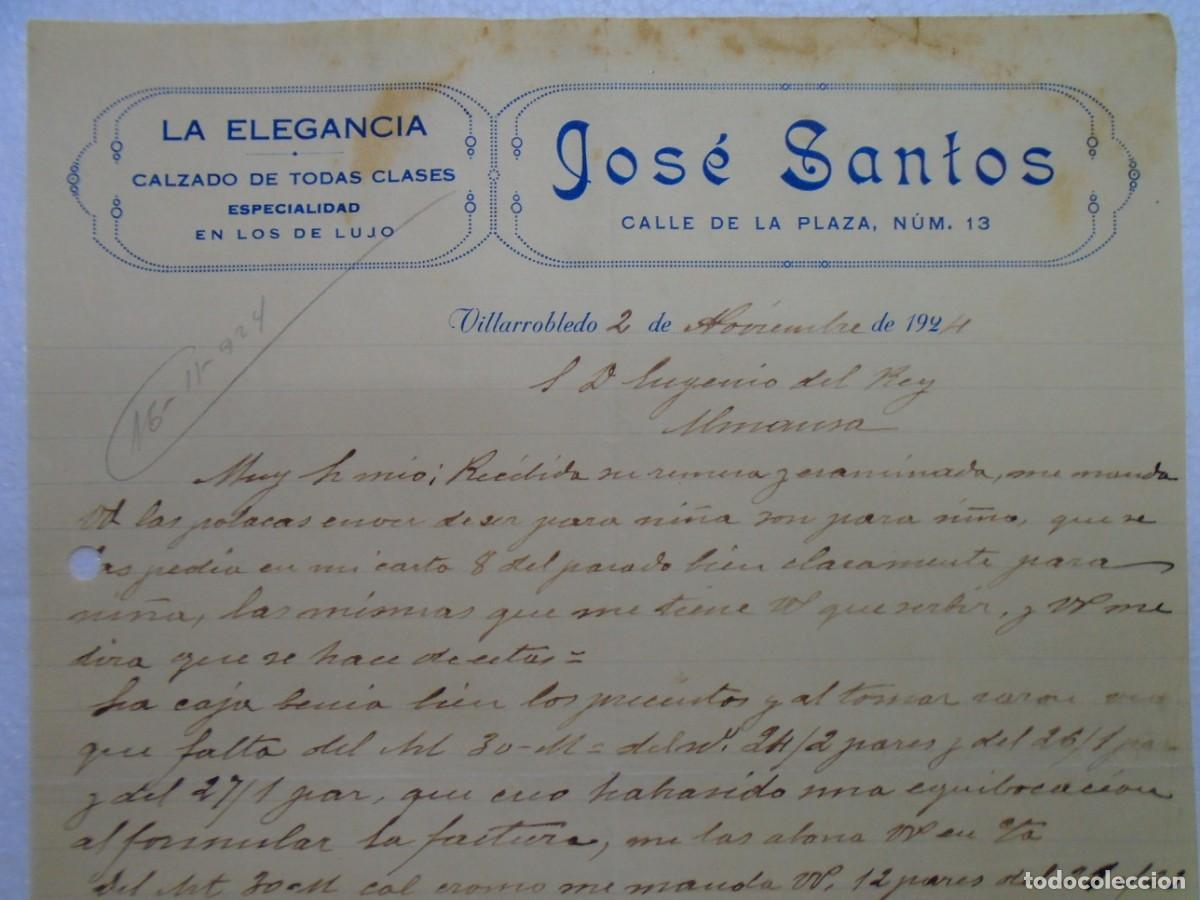 LA ELEGANCIA
CALZADO DE TODAS CLASES
ESPECIALIDAD
EN LOS DE LUJO
José Santos
CALLE DE LA PLAZA, NÚM. 13
16-11-924
Villarrobledo 2 de Noviembre de 1924
S D Eugenio del Rey
Almansa
Muy Sr mio; Recibida su remesa y examinada, me manda
Vd las polacas en vez de ser para niña son para niño, que se
las pedia en mi carta 8 del pasado bien claramente para
niña, las mismas que me tiene Vd que serbir, y Vd me
dira que se hace de estas =
La caja benia bien los precintos y al tomar razon veo
que falta del Mt 30-M= del nº. 24/2 pares y del 26/1 par
y del 27/1 par, que creo ha hasido una equibocación
al formular la factura, me las abona Vd en Cta
Del Mt 30-M col cromo me manda Vd. 12 pares del
todocoleccion